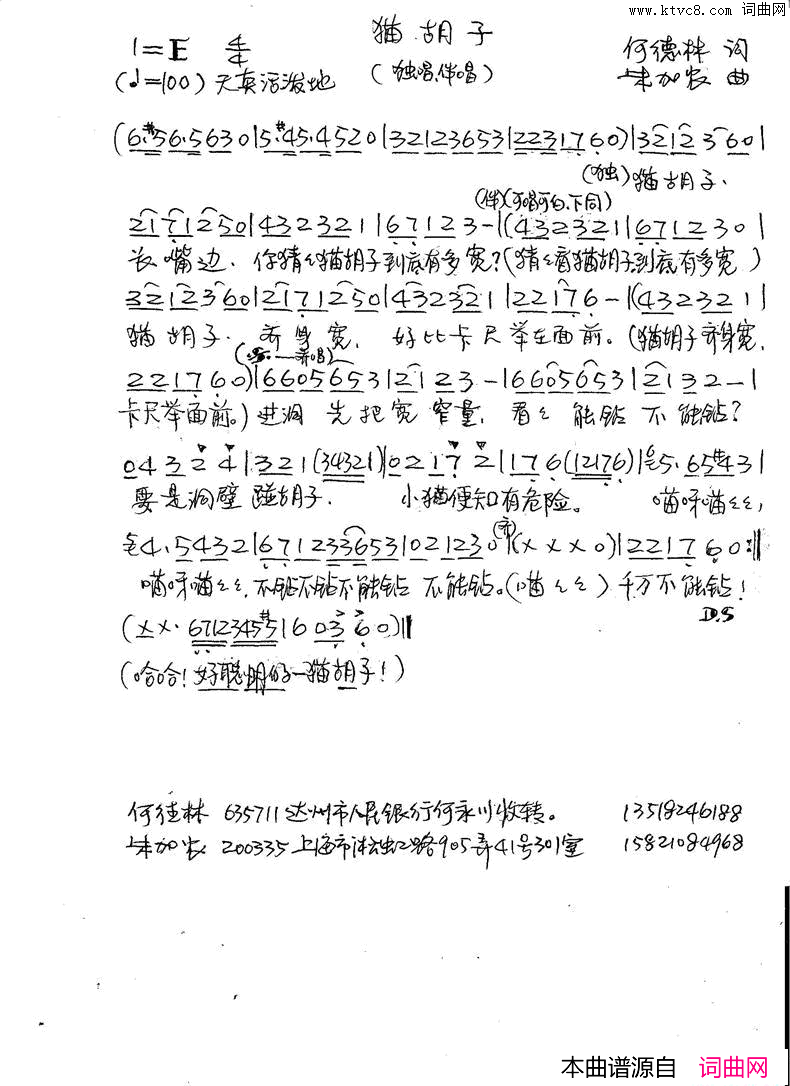 www.ktvc8.com 词曲网
猫胡子
1=E 4/4 (独唱、伴唱) 何德林 词
(♩=100) 天真活泼地 朱加农 曲
(6·#56·5630|5·#45·4520|32123653|2231760)|3212360|
(独)猫胡子·
(伴)(可唱可白、下同)
2171250|4323211|67123-|(4323211|671230|
长嘴边、你猜々猫胡子到底有多宽?(猜々看猫胡子到底有多宽)
3212360|2171250|4323211|22176-|(4323211|
猫胡子·齐身宽,好比卡尺举在面前。(猫胡子齐身宽,
齐唱
221760)|66056531|2123-|66056531|2132-|
卡尺举面前。)进洞先把宽窄量,看々能钻不能钻?
04324|321(34321)|02172|176(12176)|65·65#431|
要是洞壁碰胡子·小猫便知有危险。喵呀喵々々,
(齐)
54·5432|67123365 3|021230|(XXX0)|2217 60:‖
喵呀喵々々,不钻不钻不能钻 不能钻。(喵々々)千万不能钻!
D.S
(XX·6712345#5|60360)‖
(哈哈!好聪明的一猫胡子!)
何德林 635711 达州市人民银行何永川收转。 13518246188
朱加农 200335 上海市淞虹路905弄41号301室 15821084968
本曲谱源自 词曲网